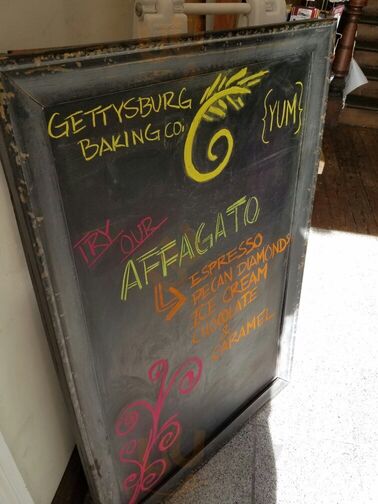 GETTYSBURG
BAKING CO.
{YUM}
TRY OUR
AFFAGATO
ESPRESSO
PECAN DIAMONDS
ICE CREAM
CHOCOLATE
&
CARAMEL